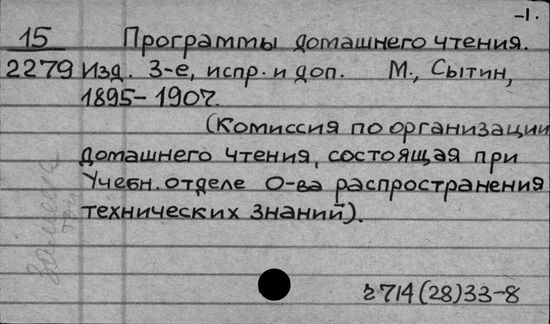 -1.
15 Программы домашнего чтения.
2279 Изд. 3-е, испр. и доп. М., Сытин,
1895-1907.
(Комиссия по организации
домашнего чтения, состоящая при
Учебн. отделе О-ва распространения
технических знаний).
2714(28)33-8